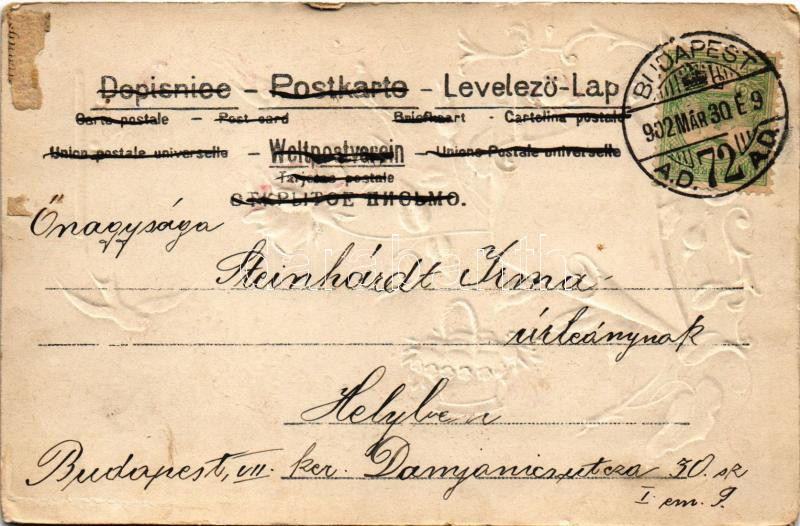 Dopisnice – Postkarte – Levelező-Lap
Carte postale – Post card Briefkaart - Cartolina postale
Union postale universelle – Weltpostverein – Unione Postale universelle
Tarjetas postale
ОТКРЫТОЕ ПИСЬМО.
BUDAPEST
902 MÁR 30 É 9
A.D. 72 A.D.
Őnagysága
Steinhárdt Irma
úrleánynak
Helyben
Budapest, VII. ker. Damjanicsutcza 30. sz
I. em. 9.
darabanth